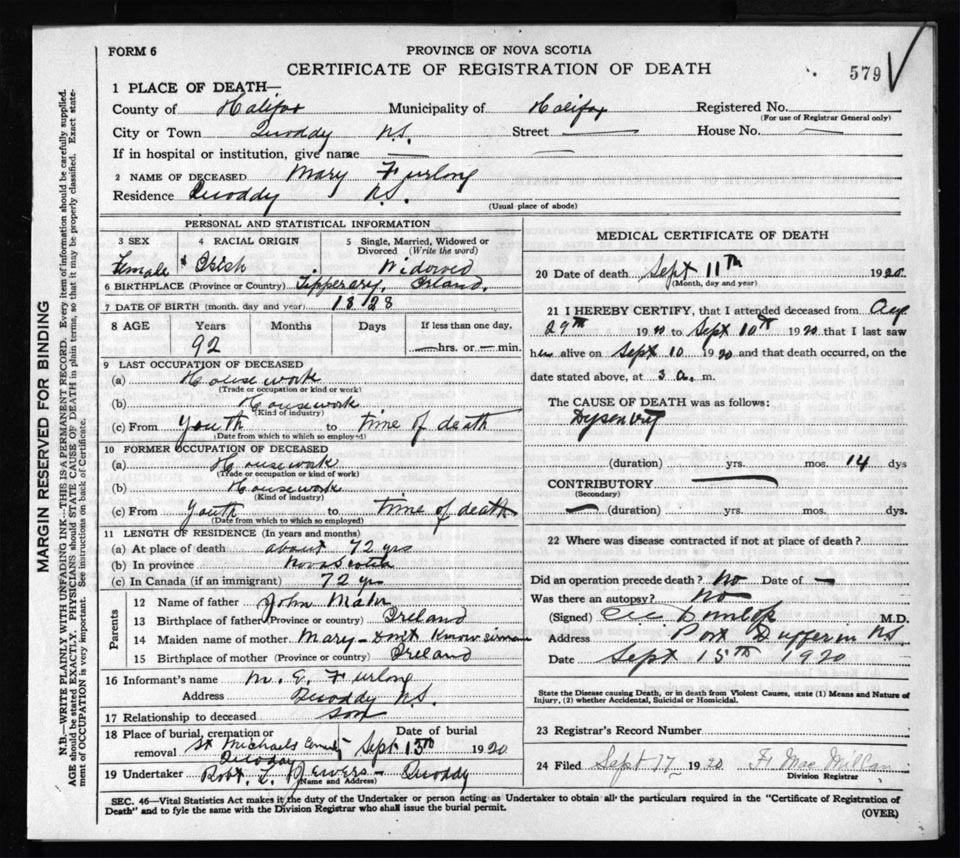 FORM 6
PROVINCE OF NOVA SCOTIA
CERTIFICATE OF REGISTRATION OF DEATH
579
1 PLACE OF DEATH—
County of Halifax Municipality of Halifax Registered No.
(For use of Registrar General only)
City or Town Quoddy N.S. Street — House No. —
If in hospital or institution, give name —
2 NAME OF DECEASED Mary Furlong
Residence Quoddy N.S.
(Usual place of abode)
PERSONAL AND STATISTICAL INFORMATION
3 SEX 4 RACIAL ORIGIN 5 Single, Married, Widowed or Divorced (Write the word)
Female Irish Widowed
6 BIRTHPLACE (Province or Country) Tipperary, Irland.
7 DATE OF BIRTH (month, day and year) 1828
8 AGE Years Months Days If less than one day,
92 — hrs. or — min.
9 LAST OCCUPATION OF DECEASED
(a) House work
(Trade or occupation or kind of work)
(b) Housework
(Kind of industry)
(c) From Youth to time of death
(Date from which to which so employed)
10 FORMER OCCUPATION OF DECEASED
(a) Housework
(Trade or occupation or kind of work)
(b) Housework
(Kind of industry)
(c) From Youth to time of death
(Date from which to which so employed)
11 LENGTH OF RESIDENCE (In years and months)
(a) At place of death about 72 yrs
(b) In province Nova Scotia
(c) In Canada (if an immigrant) 72 yrs
Parents
12 Name of father John Maher
13 Birthplace of father (Province or country) Ireland
14 Maiden name of mother Mary - Dont Know sirname
15 Birthplace of mother (Province or country) Ireland
16 Informant's name M. E. Furlong
Address Quoddy N.S.
17 Relationship to deceased Son
18 Place of burial, cremation or removal Date of burial
St Michaels Quoddy Sept 13th 1920
19 Undertaker Robt. L. Jewers - Quoddy
(Name and Address)
MEDICAL CERTIFICATE OF DEATH
20 Date of death Sept 11th 1920.
(Month, day and year)
21 I HEREBY CERTIFY, that I attended deceased from Aug.
29th 1920 to Sept 10th 1920 that I last saw
her alive on Sept 10 1920 and that death occurred, on the
date stated above, at 3 a. m.
The CAUSE OF DEATH was as follows:
Dysentry
(duration) yrs. mos. 14 dys
CONTRIBUTORY —
(Secondary)
— (duration) yrs. mos. dys.
22 Where was disease contracted if not at place of death?
Did an operation precede death? No Date of —
Was there an autopsy? No
(Signed) Dunlop M.D.
Address Port Dufferin NS
Date Sept 15th 1920
State the Disease causing Death, or in death from Violent Causes, state (1) Means and Nature of
Injury, (2) whether Accidental, Suicidal or Homicidal.
23 Registrar's Record Number
24 Filed Sept 17 1920 MacMillan
Division Registrar
SEC. 46—Vital Statistics Act makes it the duty of the Undertaker or person acting as Undertaker to obtain all the particulars required in the "Certificate of Registration of
Death" and to fyle the same with the Division Registrar who shall issue the burial permit.
(OVER)
MARGIN RESERVED FOR BINDING
N.B.—WRITE PLAINLY WITH UNFADING INK—THIS IS A PERMANENT RECORD. Every item of information should be carefully supplied.
AGE should be stated EXACTLY. PHYSICIANS should STATE CAUSE OF DEATH in plain terms, so that it may be properly classified. Exact state-
ment of OCCUPATION is very important. See instructions on back of Certificate.